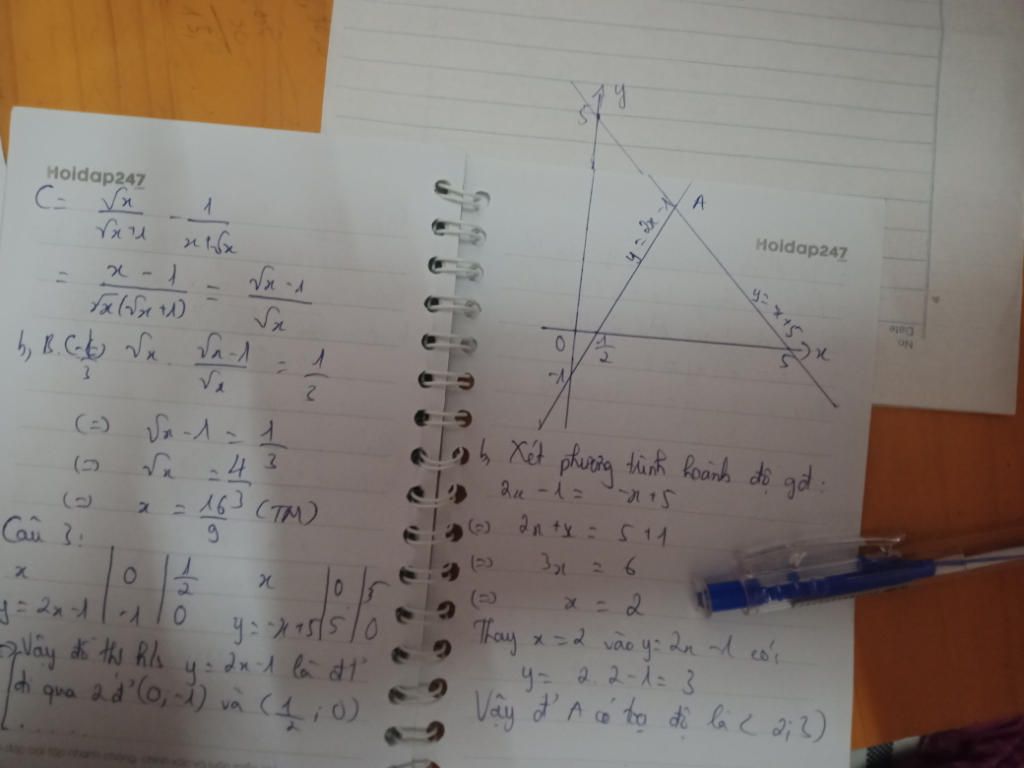 Hoidap247
C = √x/(√x+1) - 1/(x+√x)
= (x-1)/(√x(√x+1)) = (√x-1)/√x
√x . (√x-1)/√x = 1/3
(=) √x - 1 = 1/3
(=) √x = 4/3
(=) x = 16/9 (TM)
Câu 3:
x | 0 | 1/2
y = 2x-1 | -1 | 0
x | 0 | 5
y = -x+5 | 5 | 0
=> Vậy đồ thị h/s y = 2x-1 là đt'
đi qua 2 đ' (0, -1) và (1/2 ; 0)
......
y
5
A
y = 2x-1
y = -x+5
0
1/2
5
x
-1
Hoidap247
No
Date
b, Xét phương trình hoành độ gđ:
2x - 1 = -x+5
(=) 2x+x = 5+1
(=) 3x = 6
(=) x = 2
Thay x = 2 vào y = 2x - 1 có,
y = 2.2-1 = 3
Vậy đ' A có tọa độ là (2;3)